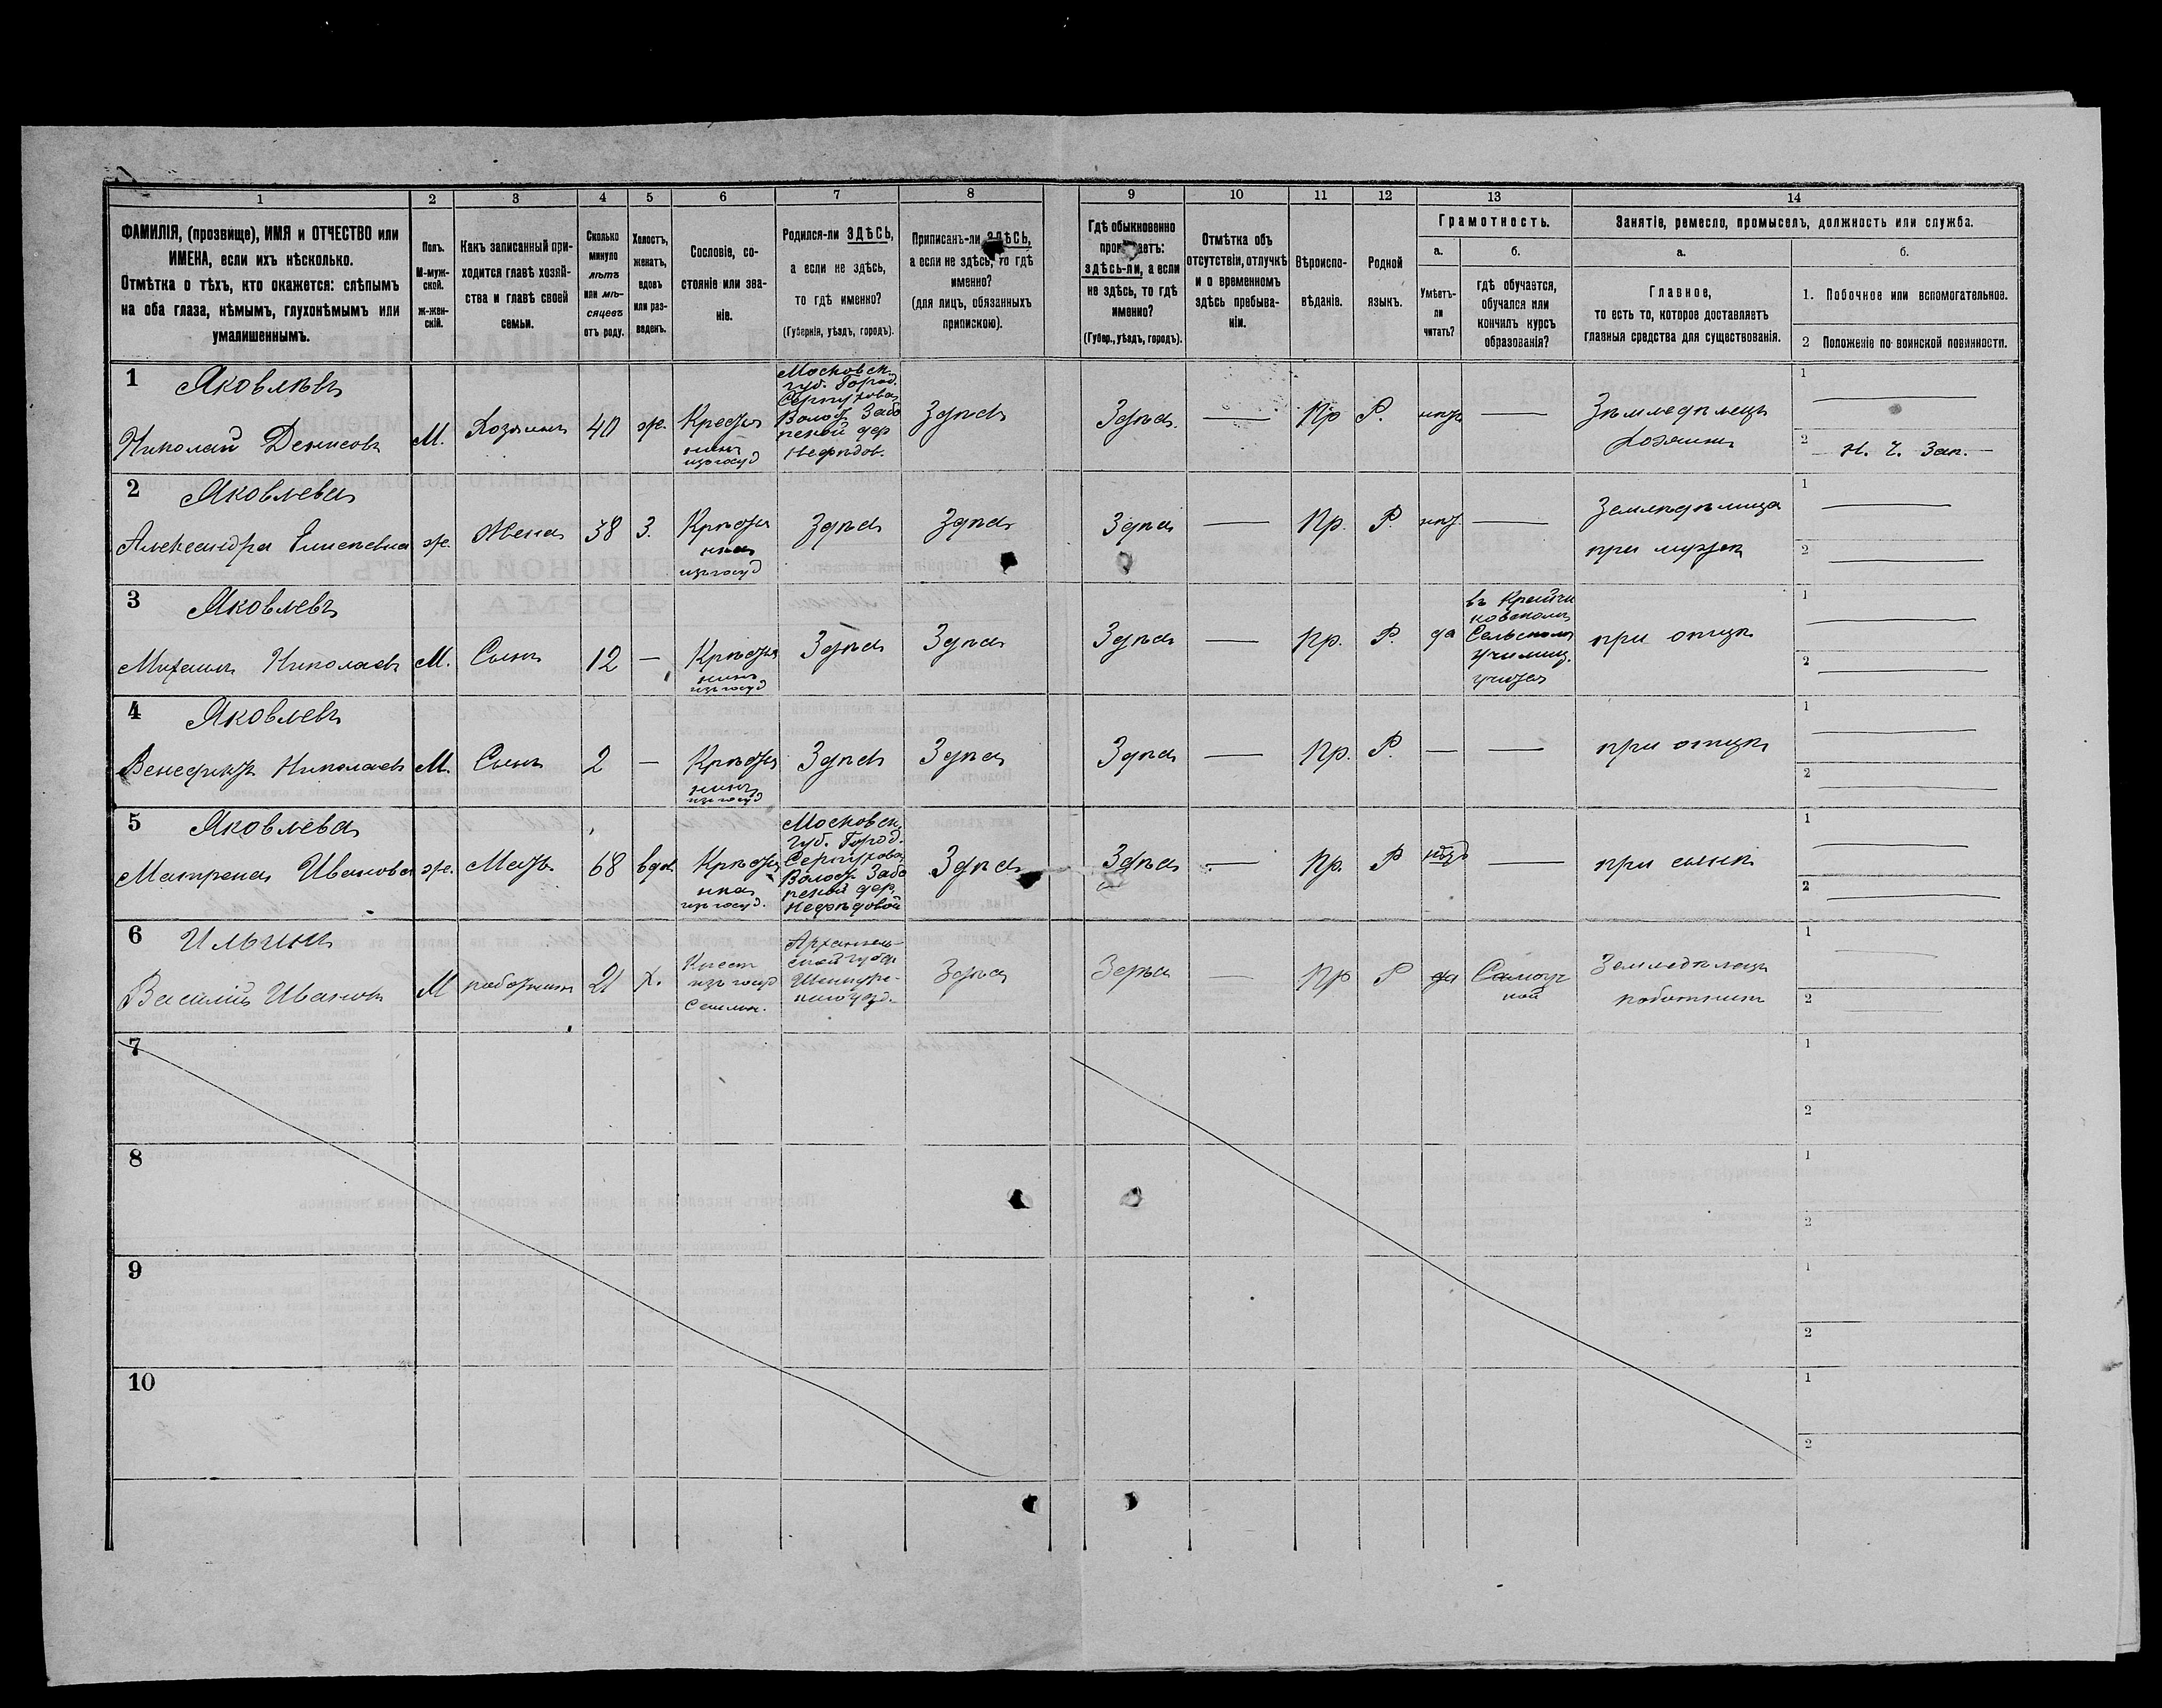 1
2
3
4
5
6
7
8
9
10
11
12
13
14
ФАМИЛІЯ, (прозвище), ИМЯ и ОТЧЕСТВО или
ИМЕНА, если ихъ нѣсколько.
Отмѣтка о тѣхъ, кто окажется: слѣпымъ
на оба глаза, нѣмымъ, глухонѣмымъ или
умалишеннымъ.
Полъ.
М-муж-
ской.
ж-жен-
скій.
Какъ записанный при-
ходится главѣ хозяй-
ства и главѣ своей
семьи.
Сколько
минуло
лѣтъ
или мѣ-
сяцевъ
отъ роду.
Холостъ,
женатъ,
вдовъ
или раз-
веденъ.
Сословіе, со-
стояніе или зва-
ніе.
Родился-ли ЗДѢСЬ,
а если не здѣсь,
то гдѣ именно?
(Губернія, уѣздъ, городъ).
Приписанъ-ли ЗДѢСЬ,
а если не здѣсь, то гдѣ
именно?
(для лицъ, обязанныхъ
припискою).
Гдѣ обыкновенно
проживаетъ:
здѣсь-ли, а если
не здѣсь, то гдѣ
именно?
(Губер., уѣздъ, городъ).
Отмѣтка объ
отсутствіи, отлучкѣ
и о временномъ
здѣсь пребыва-
ніи.
Вѣроиспо-
вѣданіе.
Родной
языкъ.
Грамотность.
а.
Умѣетъ-
ли
читать?
б.
гдѣ обучается,
обучался или
кончилъ курсъ
образованія?
Занятіе, ремесло, промыселъ, должность или служба.
а.
Главное,
то есть то, которое доставляетъ
главныя средства для существованія.
б.
1. Побочное или вспомогательное.
2 Положеніе по воинской повинности.
1 Яковлевъ
Николай Денисовъ
М.
Хозяинъ
40
же.
Кресть
нинъ
изъ госуд
Московск.
губ. Город.
Серпухова
Волост Забо
рской дер
Нефѣдов.
Здѣсь
Здѣсь
—
Пр
Р.
нѣтъ
—
Землѣделецъ
хозяинъ
1
2 Н. Ч. Зап.
2 Яковлева
Александра Елисѣевна
же.
Жена
38
З.
Крѣстья
нка
изъ госуд
Здѣсь
Здѣсь
Здѣсь
—
Пр.
Р.
нѣт.
—
Землѣдѣлица
при мужѣ
1
2
3 Яковлевъ
Михаилъ Николаевъ
М.
Сынъ
12
—
Крѣстья
нинъ
изъ госуд
Здѣсь
Здѣсь
Здѣсь
—
Пр.
Р.
да
Сельскомъ
училищ.
учится
при отцѣ
1
2
4 Яковлевъ
Венедиктъ Николаевъ
М.
Сынъ
2
—
Крѣстья
нинъ
изъ госуд
Здѣсь
Здѣсь
Здѣсь
—
Пр.
Р.
—
—
при отцѣ
1
2
5 Яковлева
Матрена Иванова
же.
Мать
68
вдов.
Крѣстья
нка
изъ госуд.
Московск.
губ. Город.
Серпухова
Волост Забо
рской дер.
Нефѣдовой
Здѣсь
Здѣсь
—
Пр.
Р
нѣтъ
—
при сынѣ
1
2
6 Ильинъ
Василій Ивановъ
М
работникъ
21
Х.
Крест
изъ госуд
Архангель-
ской губер
Шенкурс-
каго уезд.
Здѣсь
Здѣсь
—
Пр
Р
да
Самоуч
кой
Земледѣлецъ
работникъ
1
2
7
1
2
8
1
2
9
1
2
10
1
2